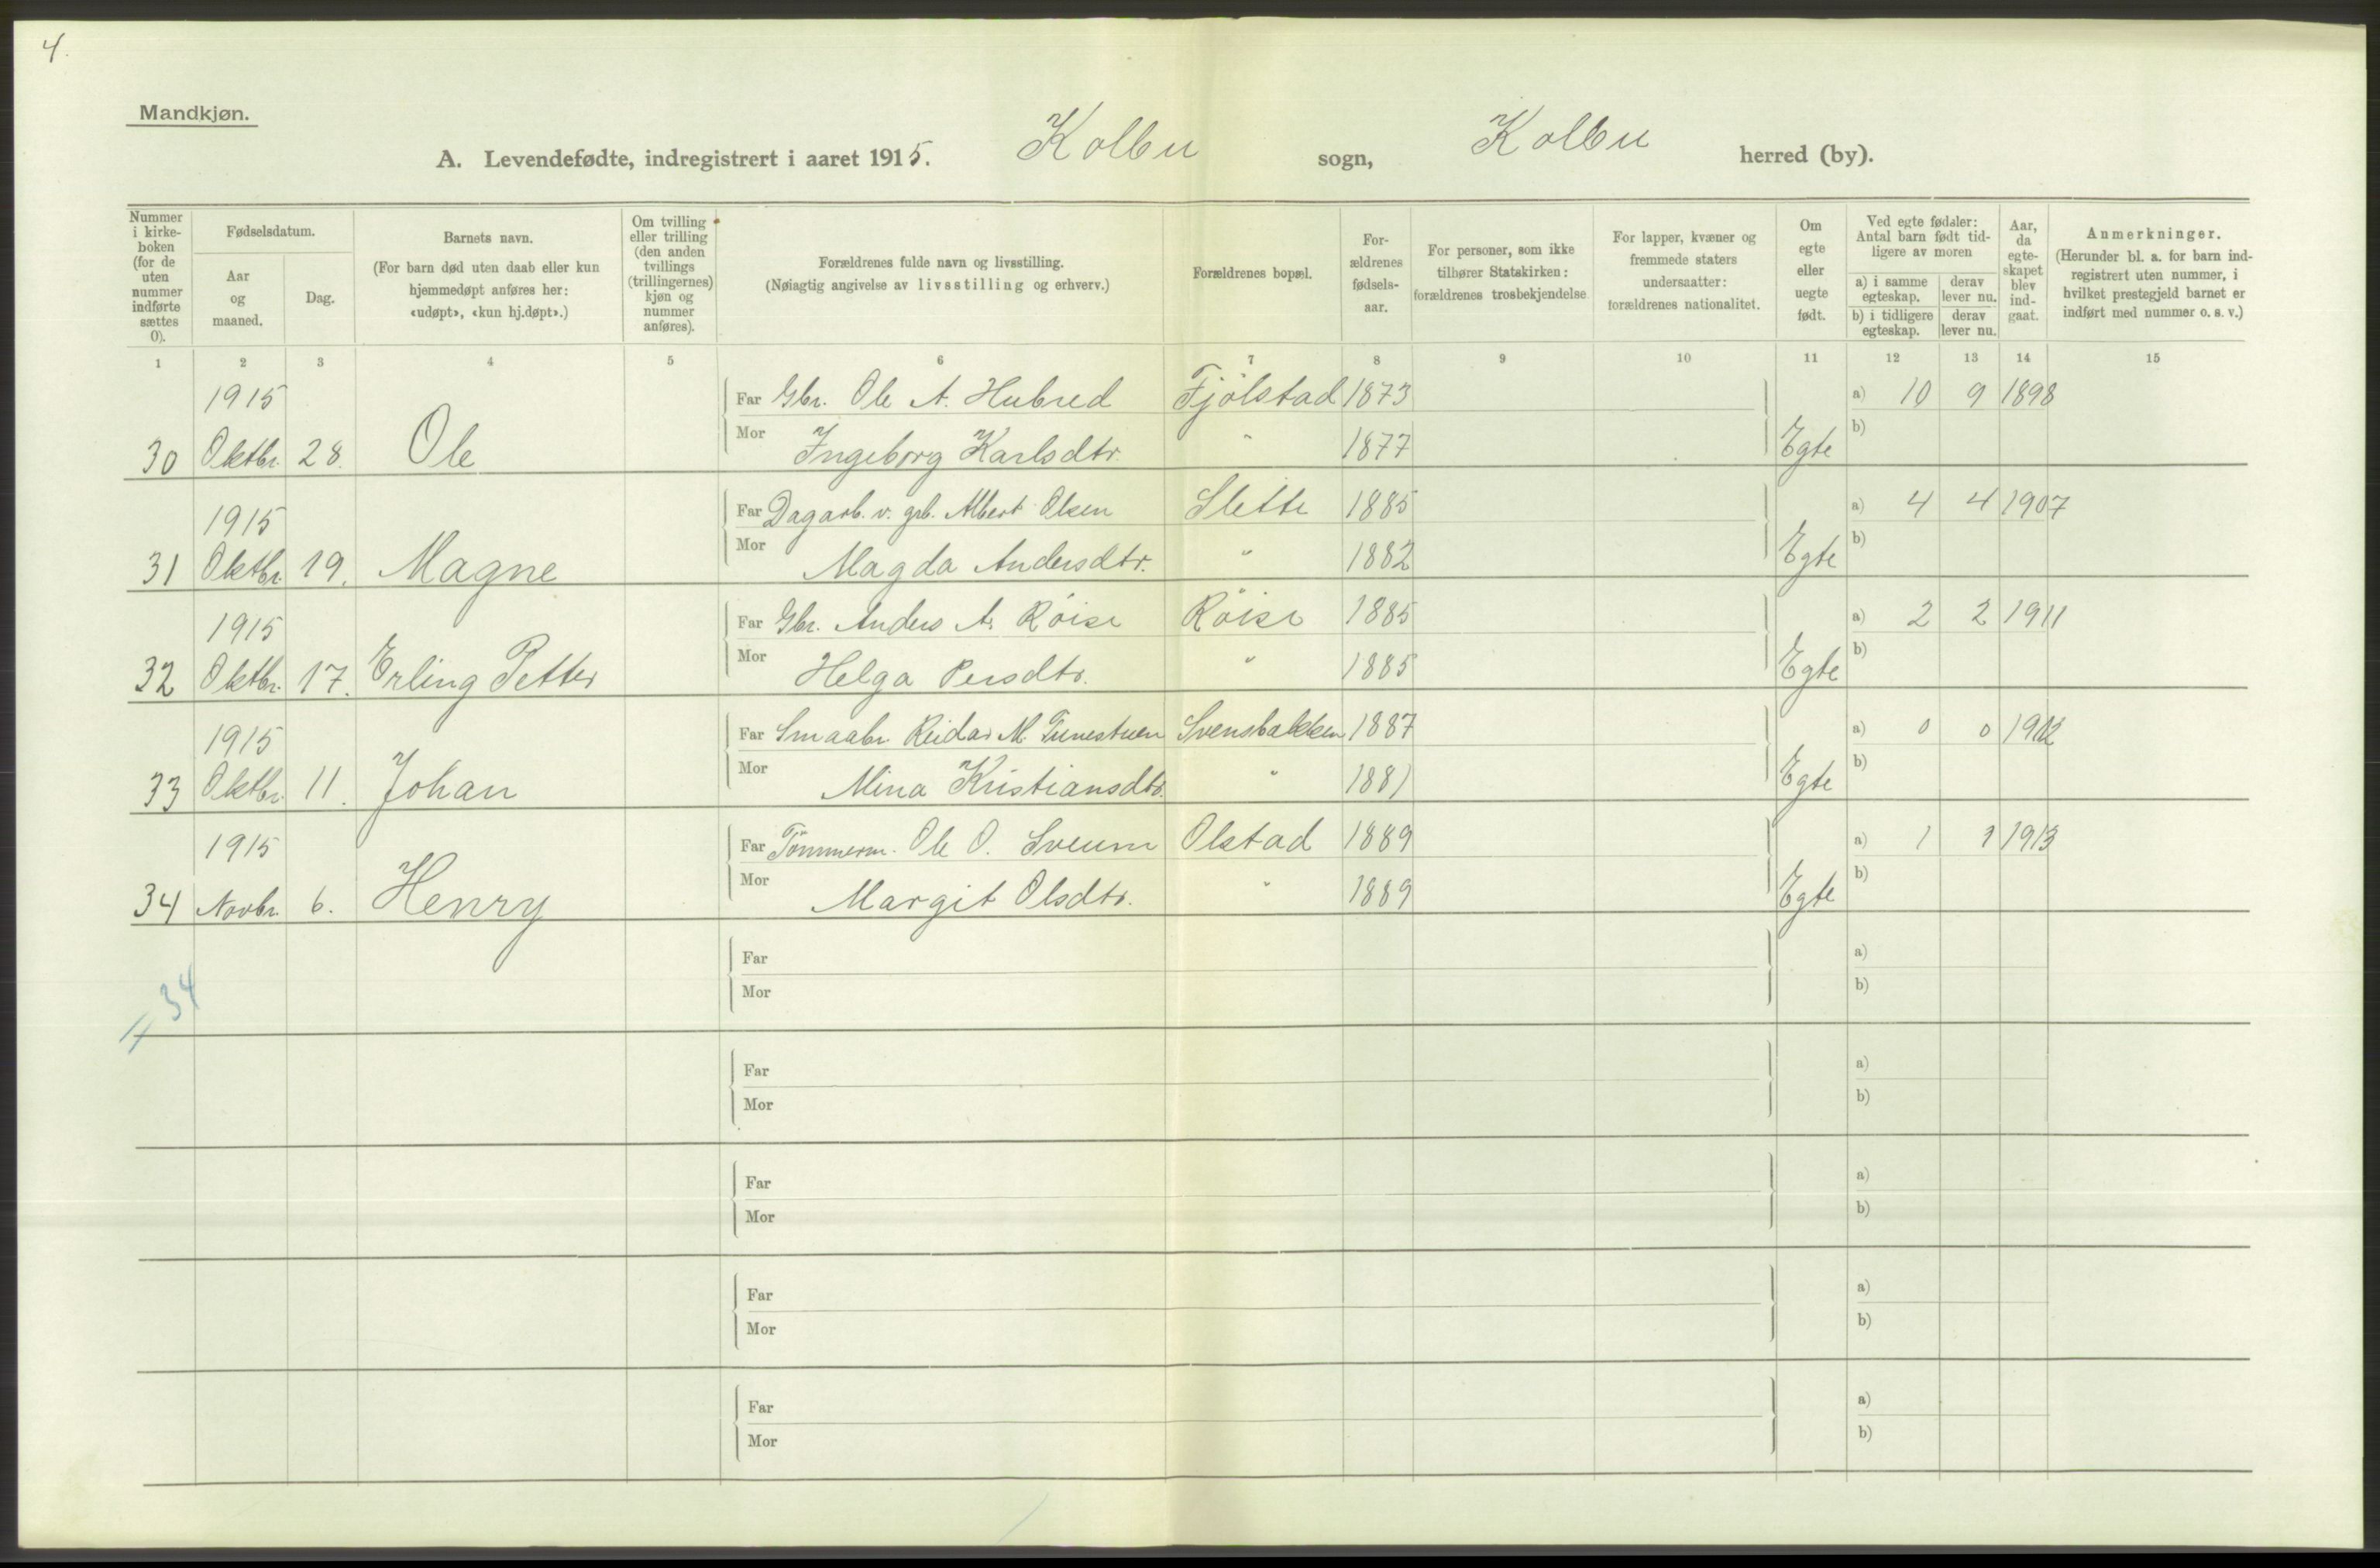 4.
Mandkjøn.
A. Levendefødte, indregistrert i aaret 1915. Kolbu sogn, Kolbu herred (by).
Nummer i kirke-boken (for de uten nummer indførte sættes 0).
Fødselsdatum.
Aar og maaned.
Dag.
Barnets navn.
(For barn død uten daab eller kun hjemmedøpt anføres her: «udøpt», «kun hj.døpt».)
Om tvilling eller trilling (den anden tvillings (trillingernes) kjøn og nummer anføres).
Forældrenes fulde navn og livsstilling.
(Nøiagtig angivelse av livsstilling og erhverv.)
Forældrenes bopæl.
For-ældrenes fødsels-aar.
For personer, som ikke tilhører Statskirken: forældrenes trosbekjendelse
For lapper, kvæner og fremmede staters undersaatter: forældrenes nationalitet.
Om egte eller uegte født.
Ved egte fødsler: Antal barn født tid-ligere av moren
a) i samme egteskap.
derav lever nu.
b) i tidligere egteskap.
derav lever nu.
Aar, da egte-skapet blev ind-gaat.
Anmerkninger.
(Herunder bl. a. for barn ind-registrert uten nummer, i hvilket prestegjeld barnet er indført med nummer o. s. v.)
1 2 3 4 5 6 7 8 9 10 11 12 13 14 15
1915 Far Gbr. Ole A. Hubred Fjölstad 1873 a) 10 9 1898
30 Oktbr. 28. Ole Mor Ingeborg Karlsdtr. " 1877 Egte b)
1915 Far Dagarb. v. grb. Albert Olsen Slette 1885 a) 4 4 1907
31 Oktbr. 19. Magne Mor Magda Andersdtr. " 1882 Egte b)
1915 Far Gbr. Anders A. Röise Röise 1885 a) 2 2 1911
32 Oktbr. 17. Erling Petter Mor Helga Persdtr. " 1885 Egte b)
1915 Far Smaabr. Reidar M. Svensbakken 1887 a) 0 0 1912
33 Oktbr. 11. Johan Mor Mina Kristiansdtr. " 1881 Egte b)
1915 Far Tömmerm. Ole O. Sveum Olstad 1889 a) 1 1 1913
34 Novbr. 6. Henry Mor Margit Olsdtr. " 1889 Egte b)
Far a)
34 Mor b)
Far a)
Mor b)
Far a)
Mor b)
Far a)
Mor b)
Far a)
Mor b)